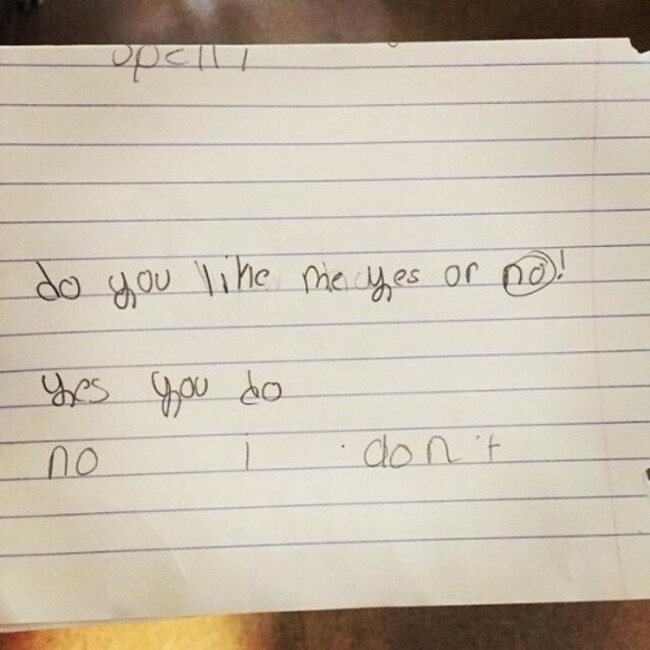 do you like me yes or no!
yes you do
no i don't